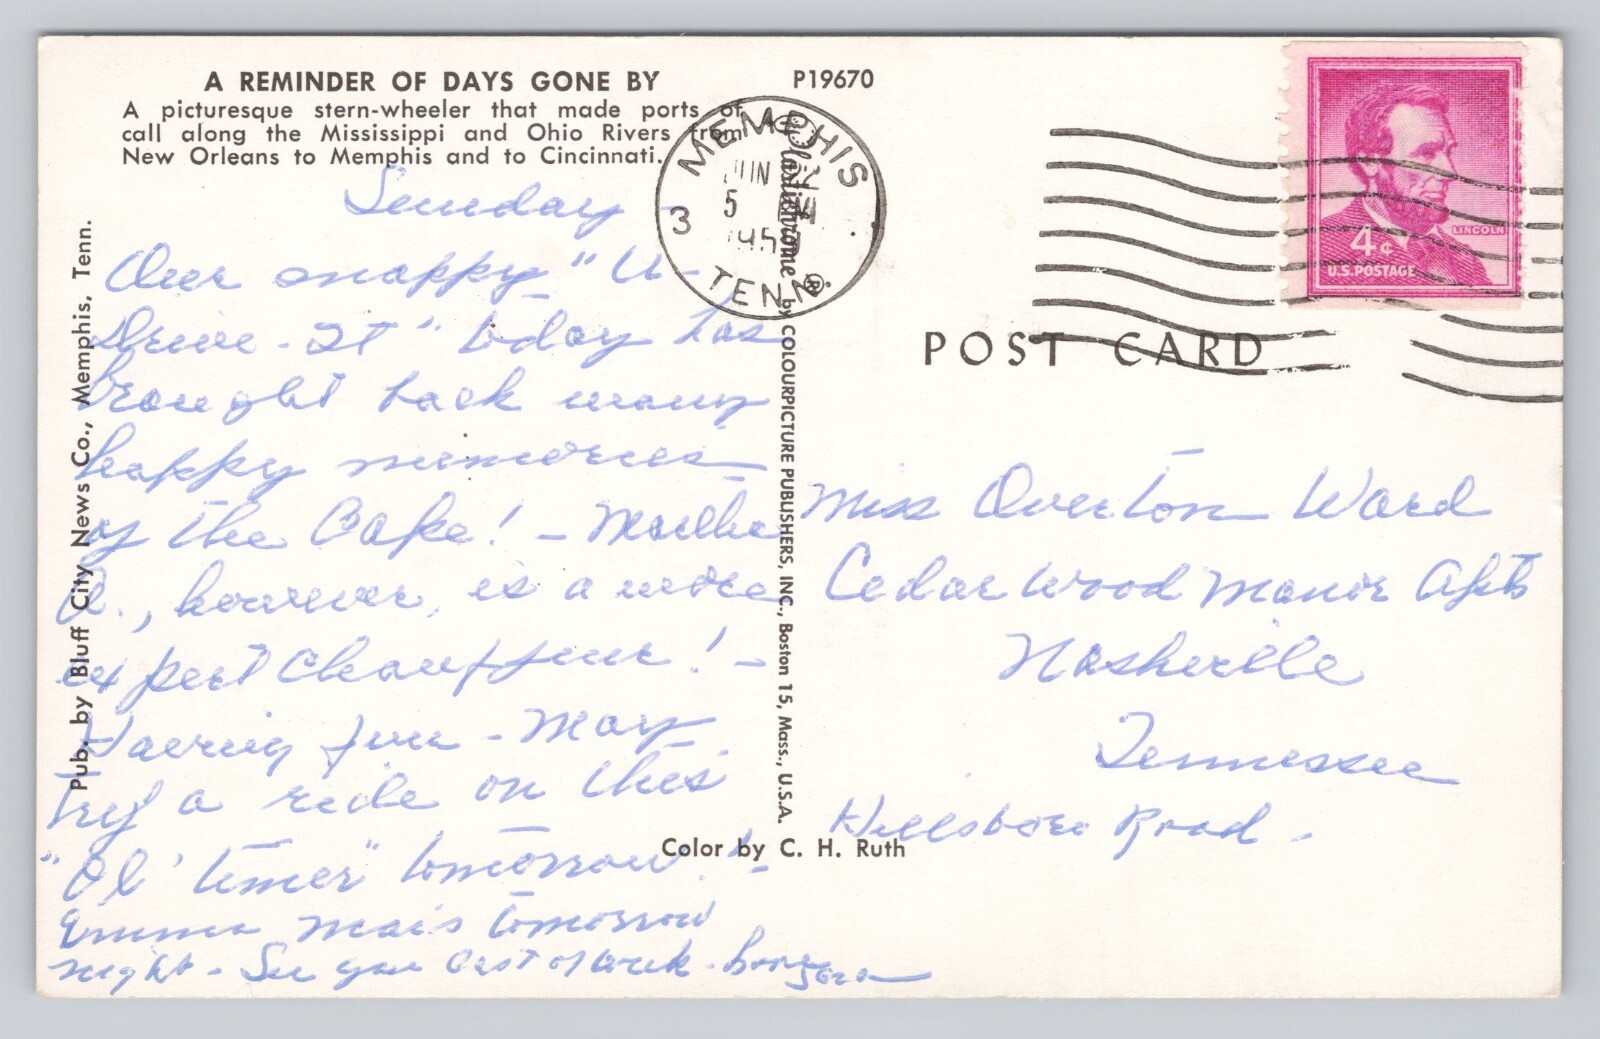 A REMINDER OF DAYS GONE BY
A picturesque stern-wheeler that made ports of
call along the Mississippi and Ohio Rivers from
New Orleans to Memphis and to Cincinnati.
P19670
MEMPHIS
JUN
5
3
TENN.
LINCOLN
4¢
U.S. POSTAGE
POST CARD
Sunday -
Our snappy "U-
Drive-It" today has
brought back many
happy memories
of the Cape! - Martha
A., however, is a more
expert chauffeur! -
Having fun - May
try a ride on this
"Ol' timer" tomorrow! -
Emma Mai's tomorrow
night - See you last of week -
Miss Overton Ward
Cedar Wood Manor Apts
Nashville
Tennessee
Hillsboro Road.
Pub. by Bluff City News Co., Memphis, Tenn.
Plastichrome ® by COLOURPICTURE PUBLISHERS, INC., Boston 15, Mass., U.S.A.
Color by C. H. Ruth